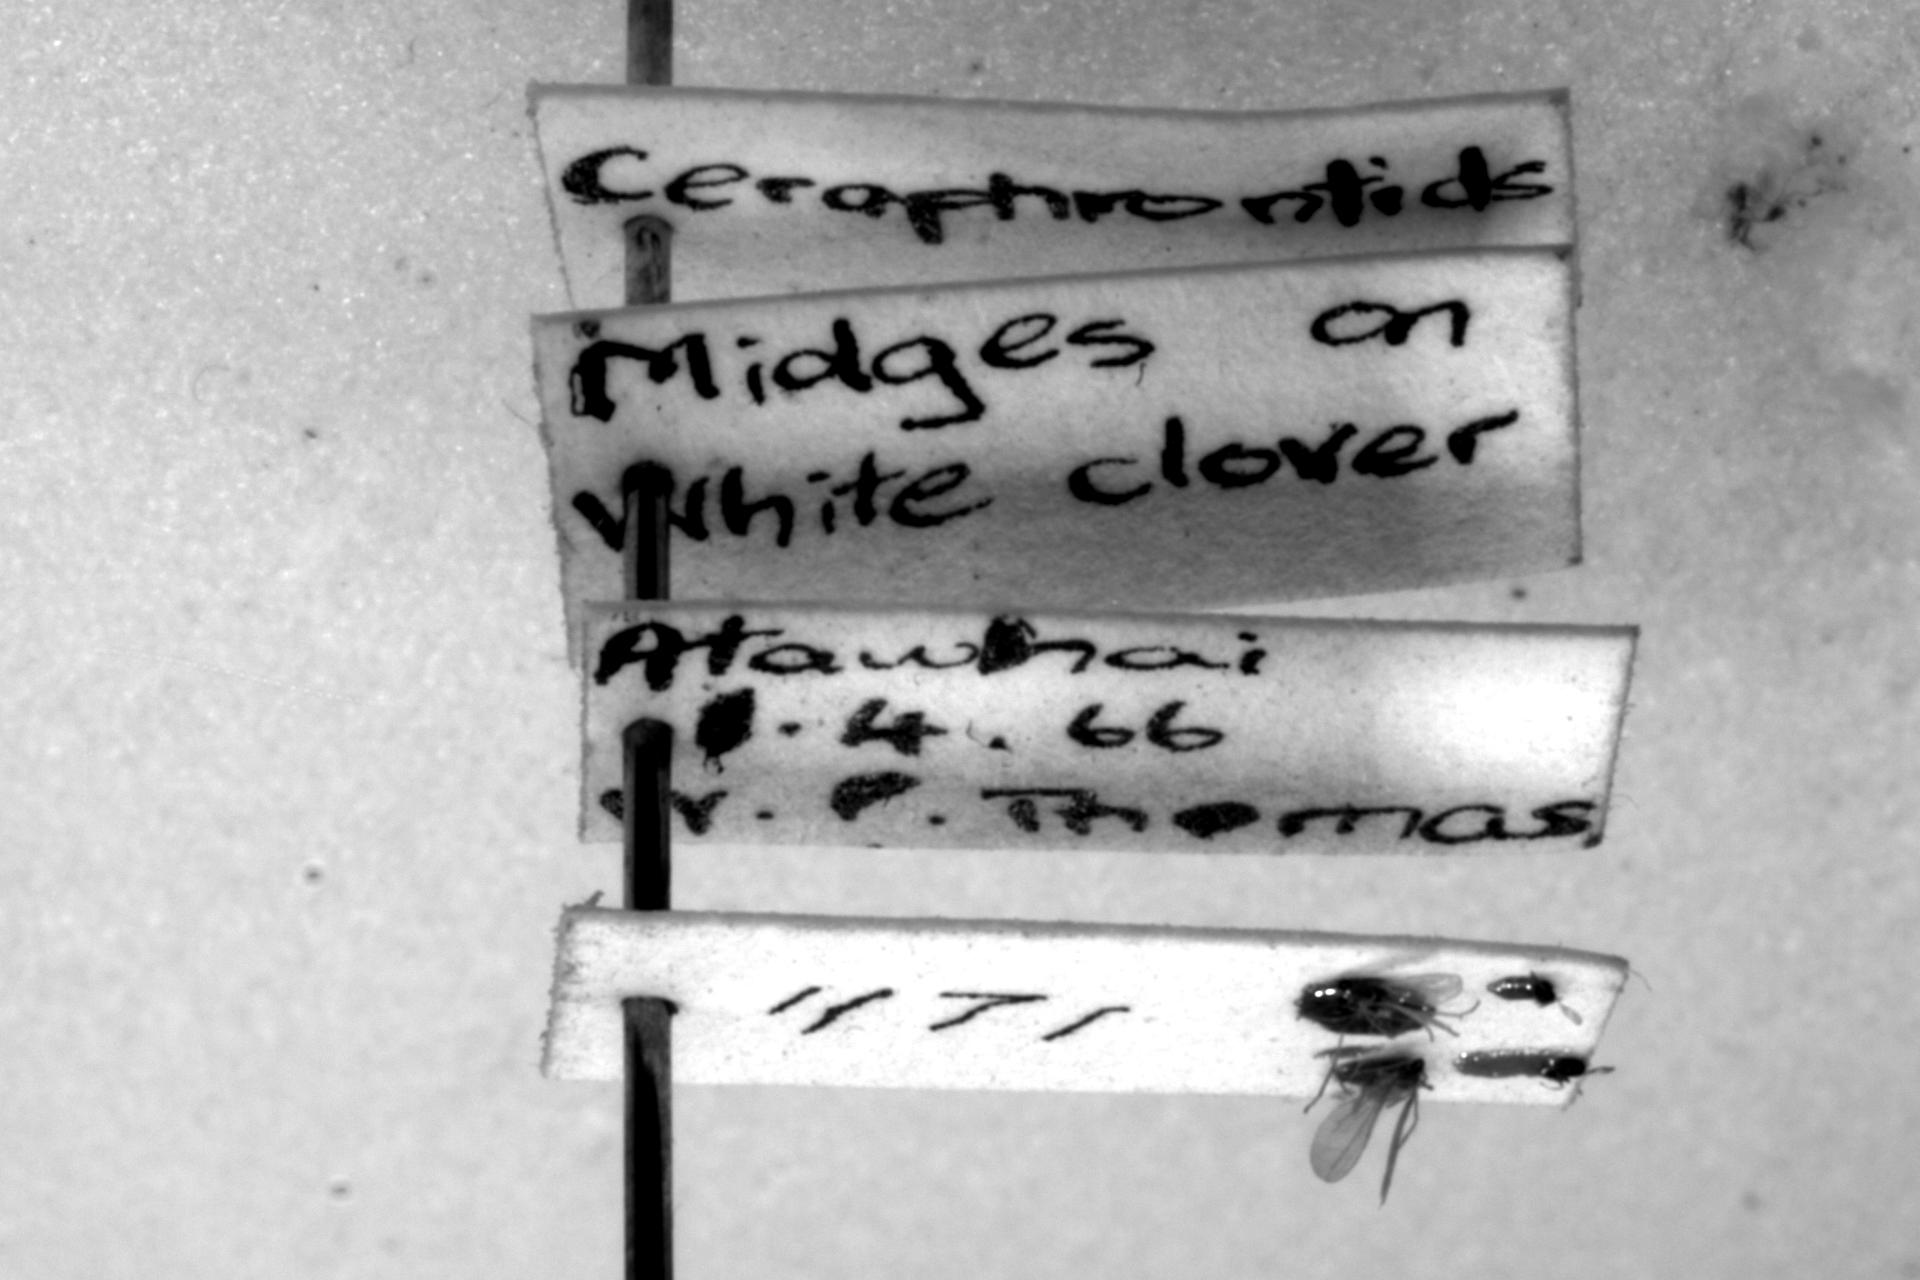 Ceraphrontids
Midges on
White clover
Atawhai
.4.66
W. P. Thomas